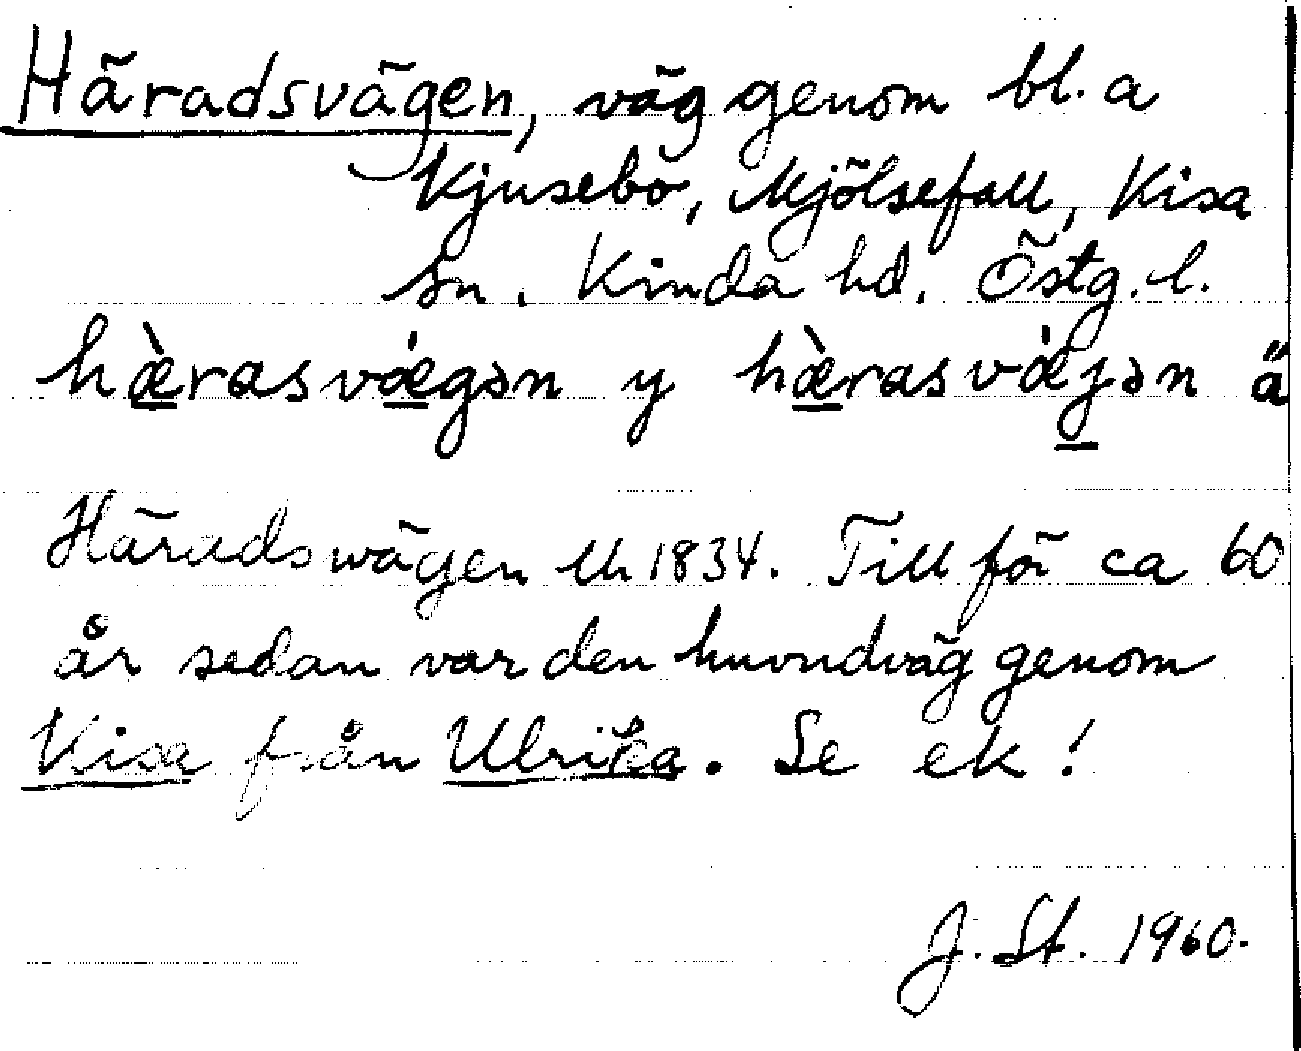 Häradsvägen, väg genom bl. a
Kjusebo, Mjölsefall, Kisa
sn. Kinda hd. Östg. l.
hæ̀rasvǽgən y hæ̀rasvǽjən ä
Häradswägen lh 1834. Till för ca 60
år sedan var den huvudväg genom
Kisa från Ulrika. Se ek!
J. St. 1960.